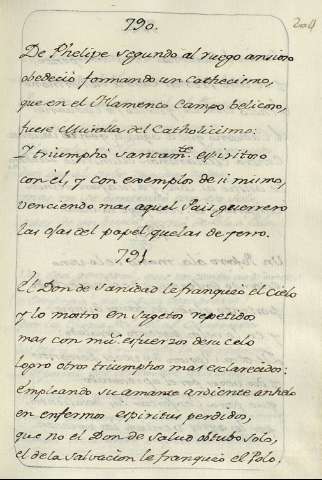 790.
204
De Phelipe segundo al ruego ansioso
obedeció formando un Cathecismo,
que en el Flamenco Campo belicoso,
fuese Muralla del Catholicismo:
I triumphó sanctamte. espiritoso
con él, y con exemplos de si mismo,
venciendo mas aquel Pais guerrero
las ojas del papel quelas de ferro.
791.
El Don de sanidad le franqueó el Cielo
y lo mostró en sugetos repetidos
mas con mil esfuerzos de su celo
logró otros triumphos mas esclarecidos:
empleando su amante ardiente anhelo
en enfermos espiritus perdidos,
que no el Don de salud obtubo solo,
el de la salvacion le franqueó el Polo.